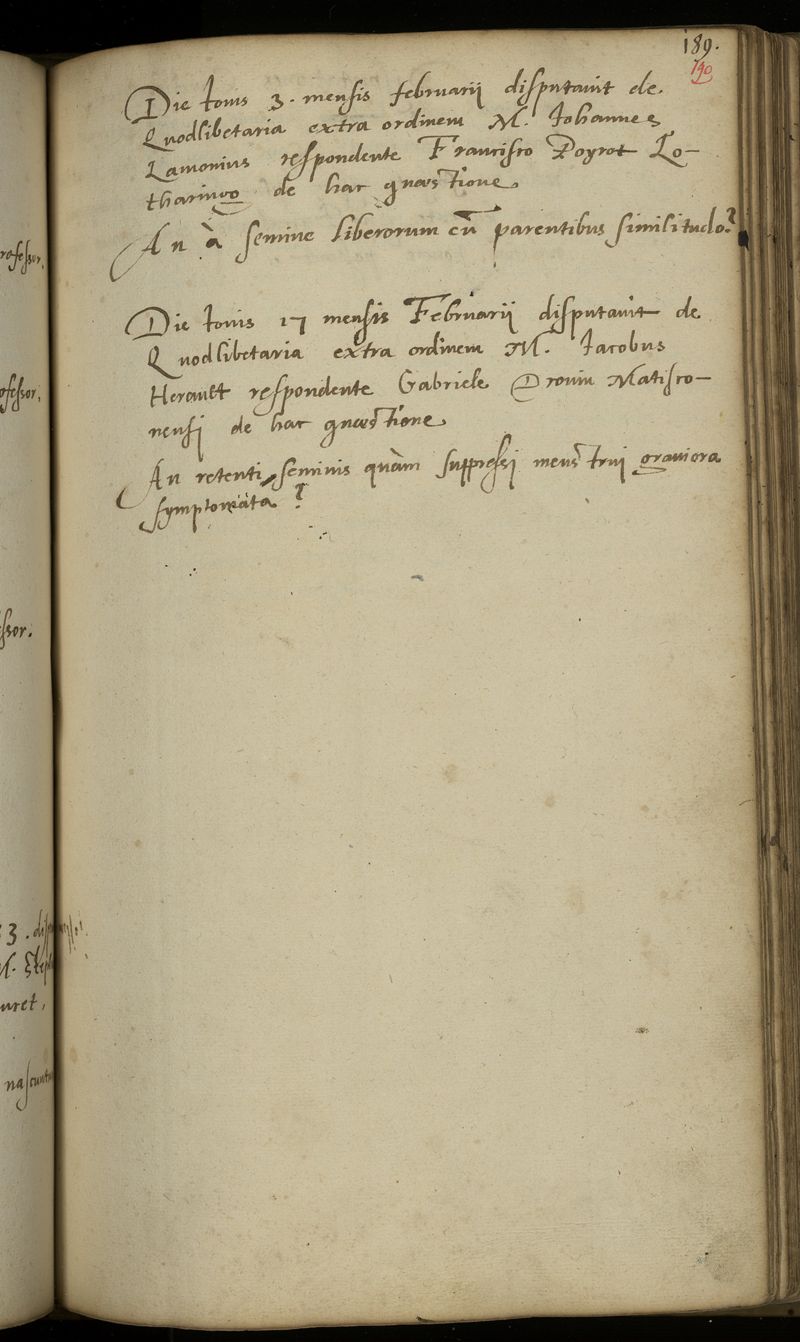 189.
190
Die Iovis 3. mensis februarij disputavit de
Quodlibetaria extra ordinem M. Johannes
Lamonius respondente Francisco Poyrot Lo-
tharingo de hac quaestione,
An à semine liberorum cū parentibus similitudo?
Die Iovis 17 mensis Februarij disputavit de
Quodlibetaria extra ordinem M. Iacobus
respondente Gabriele Matisco-
nensi de hac quaestione,
An retenti seminis quàm suppressi menstrui graviora
symptomata?